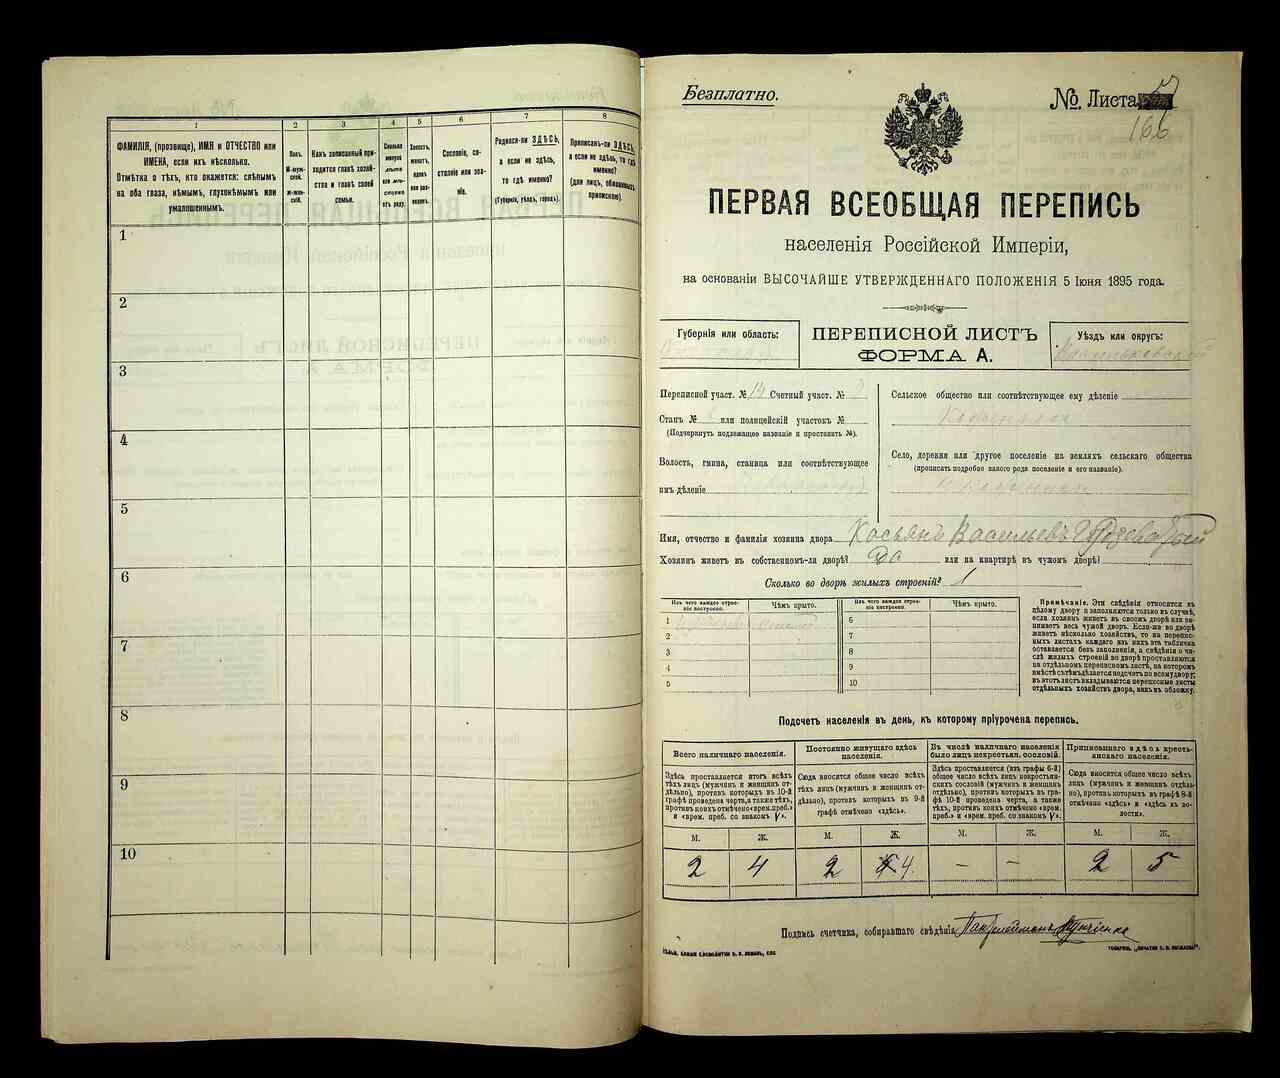 1
2
3
4
5
6
7
8
ФАМИЛІЯ, (прозвище), ИМЯ и ОТЧЕСТВО или
ИМЕНА, если ихъ нѣсколько.
Отмѣтка о тѣхъ, кто окажется: слѣпымъ
на оба глаза, нѣмымъ, глухонѣмымъ или
умалошеннымъ.
Полъ.
М-муж-
ской.
Ж-жен-
скій.
Какъ записанный при-
ходится главѣ хозяй-
ства и главѣ своей
семьи.
Сколько
минуло
лѣтъ
или мѣ-
сяцевъ
отъ роду.
Холостъ,
женатъ,
вдовъ
или раз-
веденъ.
Сословіе, со-
стояніе или зва-
ніе.
Родился-ли ЗДѢСЬ,
а если не здѣсь,
то гдѣ именно?
(Губернія, уѣздъ, городъ).
Приписанъ-ли ЗДѢСЬ,
а если не здѣсь, то гдѣ
именно?
(для лицъ, обязанныхъ
припискою).
1
2
3
4
5
6
7
8
9
10
Безплатно.
№ Листа
166
ПЕРВАЯ ВСЕОБЩАЯ ПЕРЕПИСЬ
населенія Россійской Имперіи,
на основаніи ВЫСОЧАЙШЕ УТВЕРЖДЕННАГО ПОЛОЖЕНІЯ 5 Іюня 1895 года.
Губернія или область:
ПЕРЕПИСНОЙ ЛИСТЪ
ФОРМА А.
Уѣздъ или округъ:
Васильковскій
Переписной участ. № 14 Счетный участ. №
Станъ № или полицейскій участокъ №
(Подчеркнуть подлежащее названіе и проставить №).
Волость, гмина, станица или соотвѣтствующее
имъ дѣленіе
Сельское общество или соотвѣтствующее ему дѣленіе
Село, деревня или другое поселеніе на земляхъ сельскаго общества
(прописать подробно какого рода поселеніе и его названіе).
Имя, отчество и фамилія хозяина двора Касьянъ Васильевъ
Хозяинъ живетъ въ собственномъ-ли дворѣ? Да или на квартирѣ въ чужомъ дворѣ?
Сколько во дворѣ жилыхъ строеній? 1
Изъ чего каждое строе-
ніе построено.
Чѣмъ крыто.
Изъ чего каждое строе-
ніе построено.
Чѣмъ крыто.
1
2
3
4
5
6
7
8
9
10
Примѣчаніе. Эти свѣдѣнія относятся къ
цѣлому двору и заполняются только въ случаѣ,
если хозяинъ живетъ въ своемъ дворѣ или за-
нимаетъ весь чужой дворъ. Если-же во дворѣ
живетъ нѣсколько хозяйствъ, то на перепис-
ныхъ листахъ каждаго изъ нихъ эта табличка
оставляется безъ заполненія, а свѣдѣнія о чи-
слѣ жилыхъ строеній во дворѣ проставляются
на отдѣльномъ переписномъ листѣ, на которомъ
вмѣстѣ съ тѣмъ дѣлается подсчетъ по всему двору;
въ этотъ листъ вкладываются переписные листы
отдѣльныхъ хозяйствъ двора, какъ въ обложку.
Подсчетъ населенія въ день, къ которому пріурочена перепись.
Всего наличнаго населенія.
Постоянно живущаго здѣсь
населенія.
Въ числѣ наличнаго населенія
было лицъ некрестьян. сословій.
Приписаннаго здѣсь кресть-
янскаго населенія.
Здѣсь проставляется итогъ всѣхъ
тѣхъ лицъ (мужчинъ и женщинъ от-
дѣльно), противъ которыхъ въ 10-й
графѣ проведена черта, а также тѣхъ,
противъ коихъ отмѣчено «врем. преб.»
и «врем. преб. со знакомъ V».
Сюда вносится общее число всѣхъ
тѣхъ лицъ (мужчинъ и женщинъ от-
дѣльно), противъ которыхъ въ 9-й
графѣ отмѣчено «здѣсь».
Здѣсь проставляется (изъ графы 6-й)
общее число всѣхъ лицъ некрестьян-
скихъ сословій (мужчинъ и женщинъ
отдѣльно), противъ которыхъ въ гра-
фѣ 10-й проведена черта, а также
тѣхъ, противъ коихъ отмѣчено «врем.
преб.» и «врем. преб. со знакомъ V».
Сюда вносится общее число всѣхъ
лицъ (мужчинъ и женщинъ отдѣль-
но), противъ которыхъ въ графѣ 8-й
отмѣчено «здѣсь» и «здѣсь въ во-
лости».
М. Ж. М. Ж. М. Ж. М. Ж.
2 4 2 4. — — 2 5
Подпись счетчика, собиравшаго свѣдѣнія